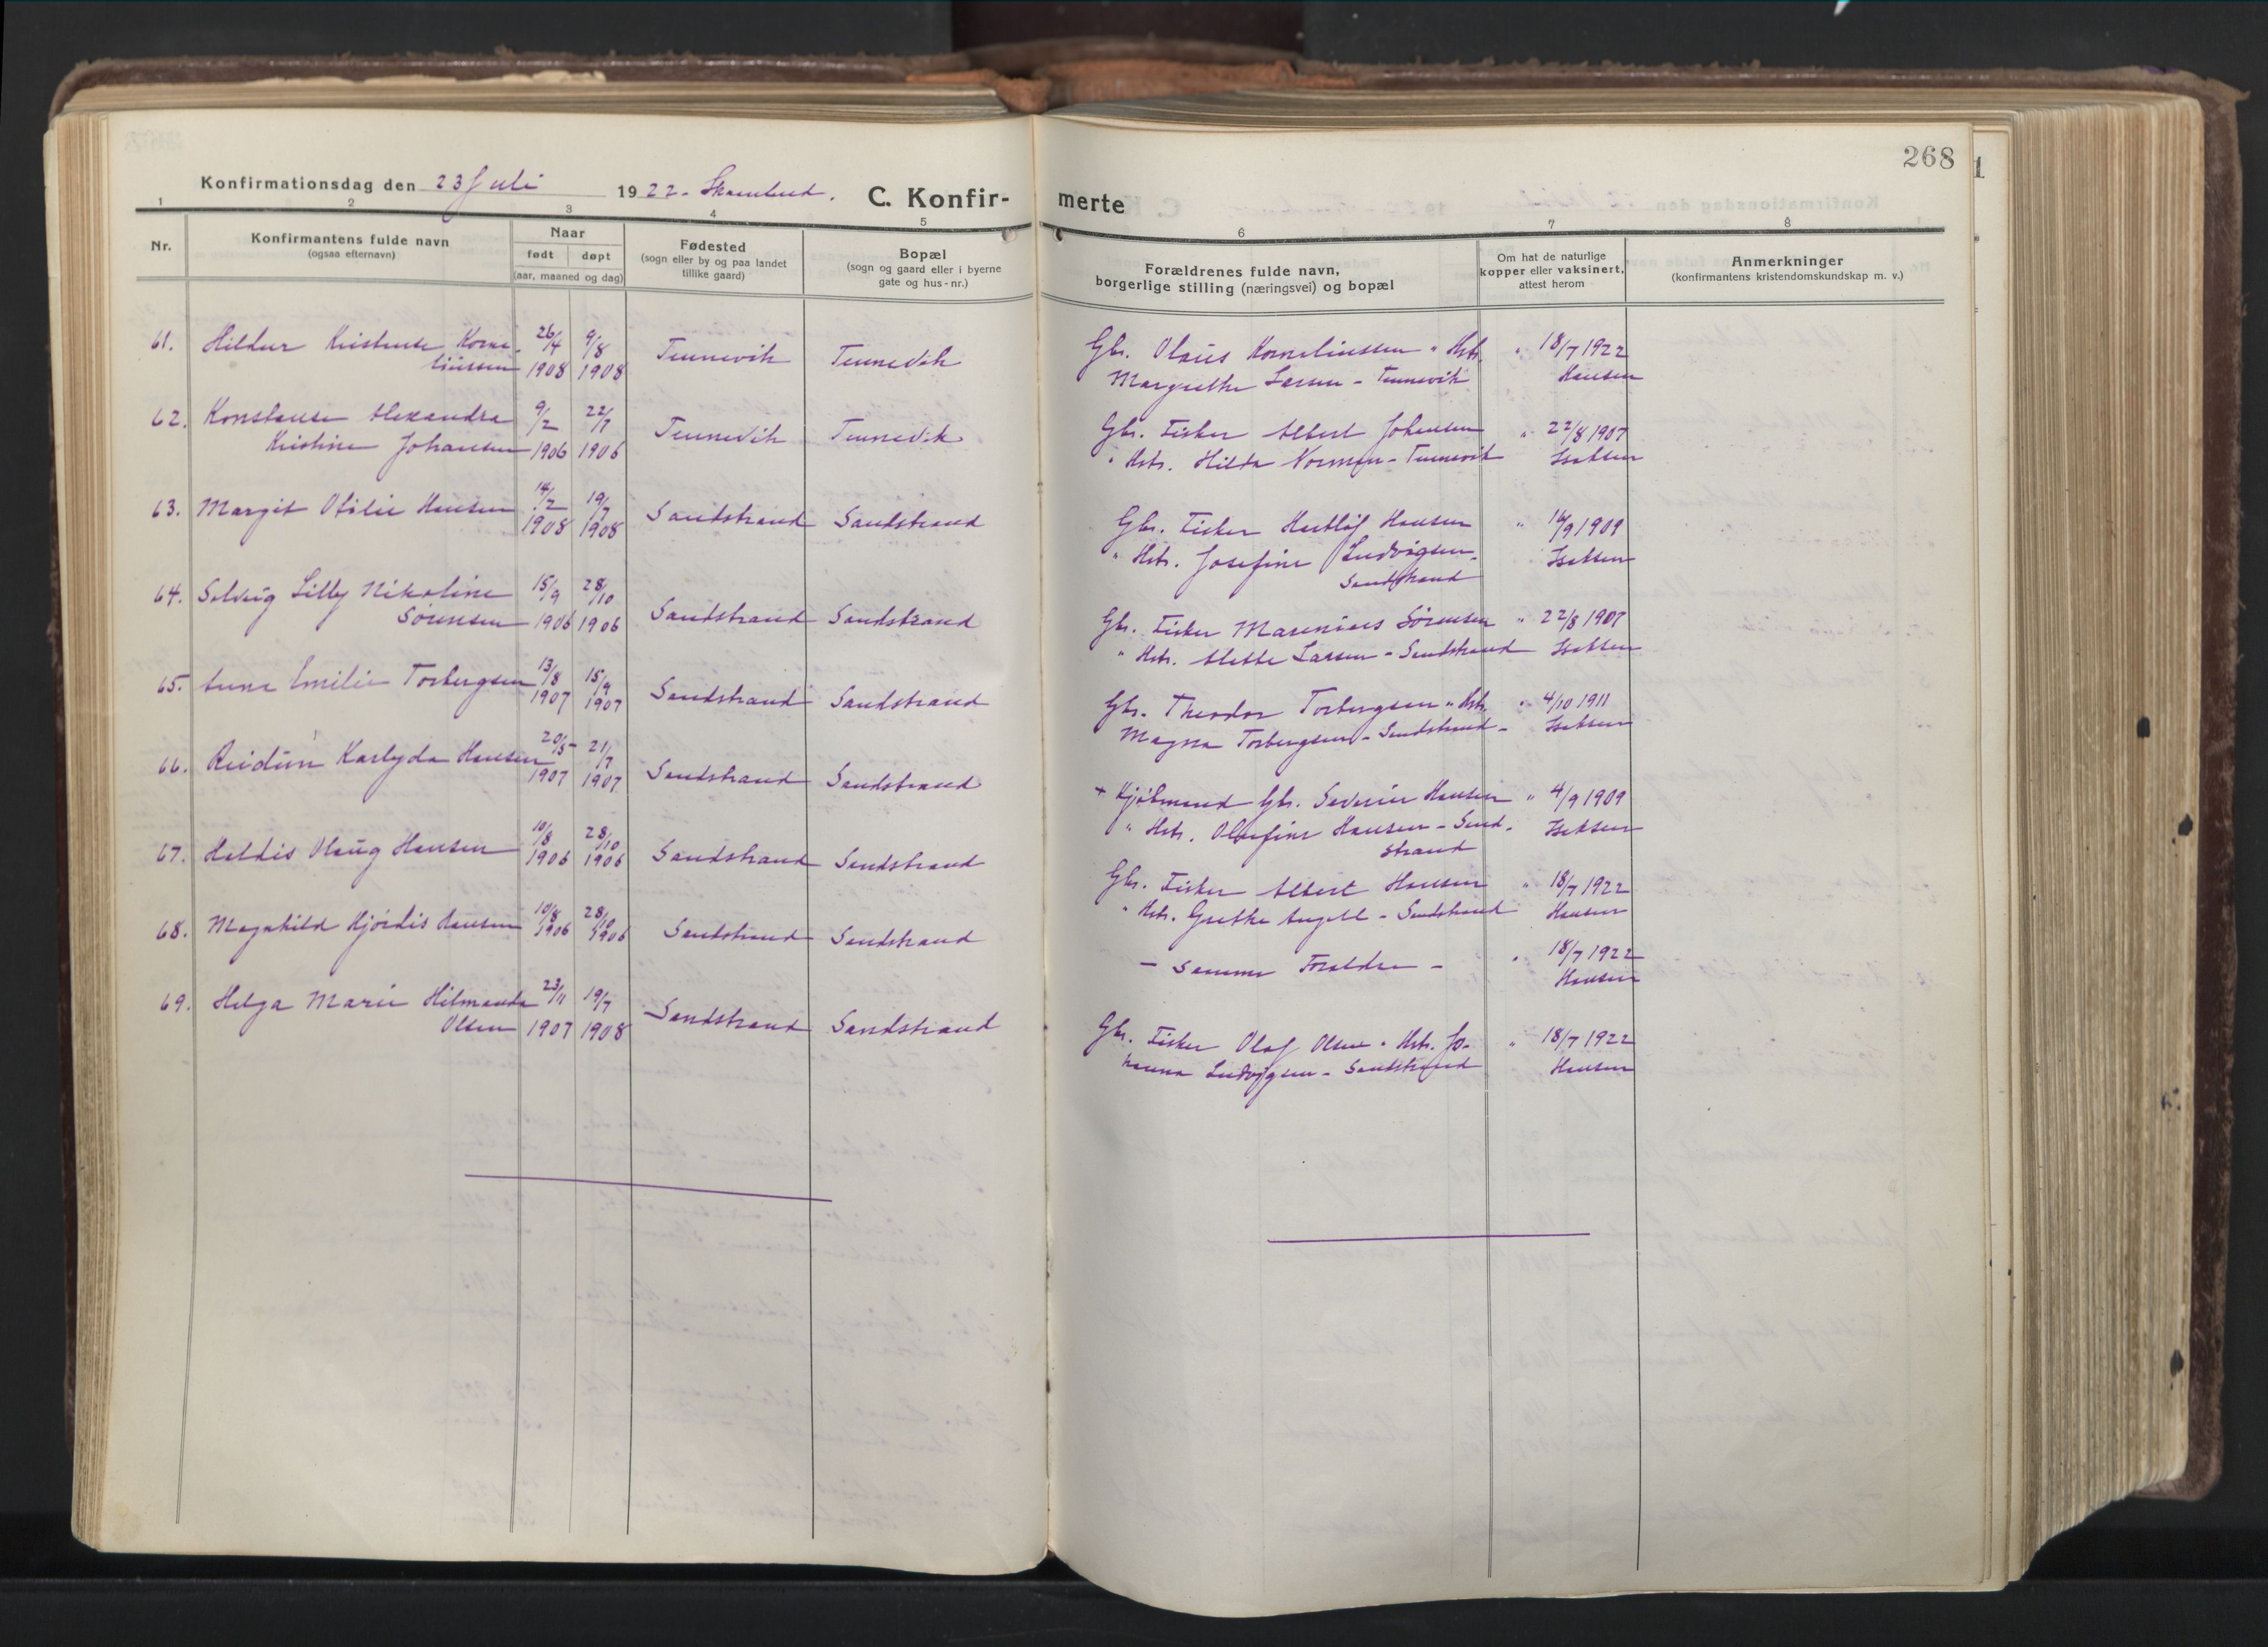 268
Konfirmationsdag den 23 Juli 1922 - Skaanland. C. Konfir-
merte
1 2 3 4 5
6 7 8
Nr.
Konfirmantens fulde navn
(ogsaa efternavn)
Naar
født døpt
(aar, maaned og dag)
Fødested
(sogn eller by og paa landet
tillike gaard)
Bopæl
(sogn og gaard eller i byerne
gate og hus-nr.)
Forældrenes fulde navn,
borgerlige stilling (næringsvei) og bopæl
Om hat de naturlige
kopper eller vaksinert,
attest herom
Anmerkninger
(konfirmantens kristendomskundskap m. v.)
61. Hildur Kristense Korne- 26/4 9/8 Tennevik Tennevik
liussen 1908 1908
Gbr. Olaus Korneliussen " Hstr. " 18/7 1922
Margrethe Larsen - Tennevik Hansen
62. Konstanse Alexandra 9/2 22/7 Tennevik Tennevik
Kristine Johansen 1906 1906
Gbr. Fisker Albert Johansen " 22/8 1907
" Hstr. Hilda Norman - Tennevik Isaksen
63. Margit Otilie Hansen 14/2 19/7 Sandstrand Sandstrand
1908 1908
Gbr. Fisker Hartløf Hansen " 16/9 1909
" Hstr. Josefine Ludvigsen - Isaksen
Sandstrand
64. Solveig Lilly Nikoline 15/9 28/10 Sandstrand Sandstrand
Sørensen 1906 1906
Gbr. Fisker Marenius Sørensen " 22/8 1907
" Hstr. Alette Larsen - Sandstrand Isaksen
65. Anna Emilie Torbergsen 13/8 15/9 Sandstrand Sandstrand
1907 1907
Gbr. Theodor Torbergsen " Hstr. " 4/10 1911
Magna Torbergsen - Sandstrand - Isaksen
66. Reidun Karlyda Hansen 20/5- 21/7 Sandstrand Sandstrand
1907 1907
+ Kjøbmand Gbr. Severin Hansen " 4/9 1909
" Hstr. Olufine Hansen - Sand- Isaksen
strand
67. Haldis Olaug Hansen 10/8 28/10 Sandstrand Sandstrand
1906 1906
Gbr. Fisker Albert Hansen " 18/7 1922
" Hstr. Grethe Angell - Sandstrand Hansen
68. Magnhild Hjørdis Hansen 10/8 28/10 Sandstrand Sandstrand
1906 1906
- Samme Forældre - " 18/7 1922
Hansen
69. Helga Marie Hilmanda 23/11 19/7 Sandstrand Sandstrand
Olsen 1907 1908
Gbr. Fisker Olaf Olsen " Hstr. Jo- " 18/7 1922
hanna Ludvigsen - Sandstrand Hansen